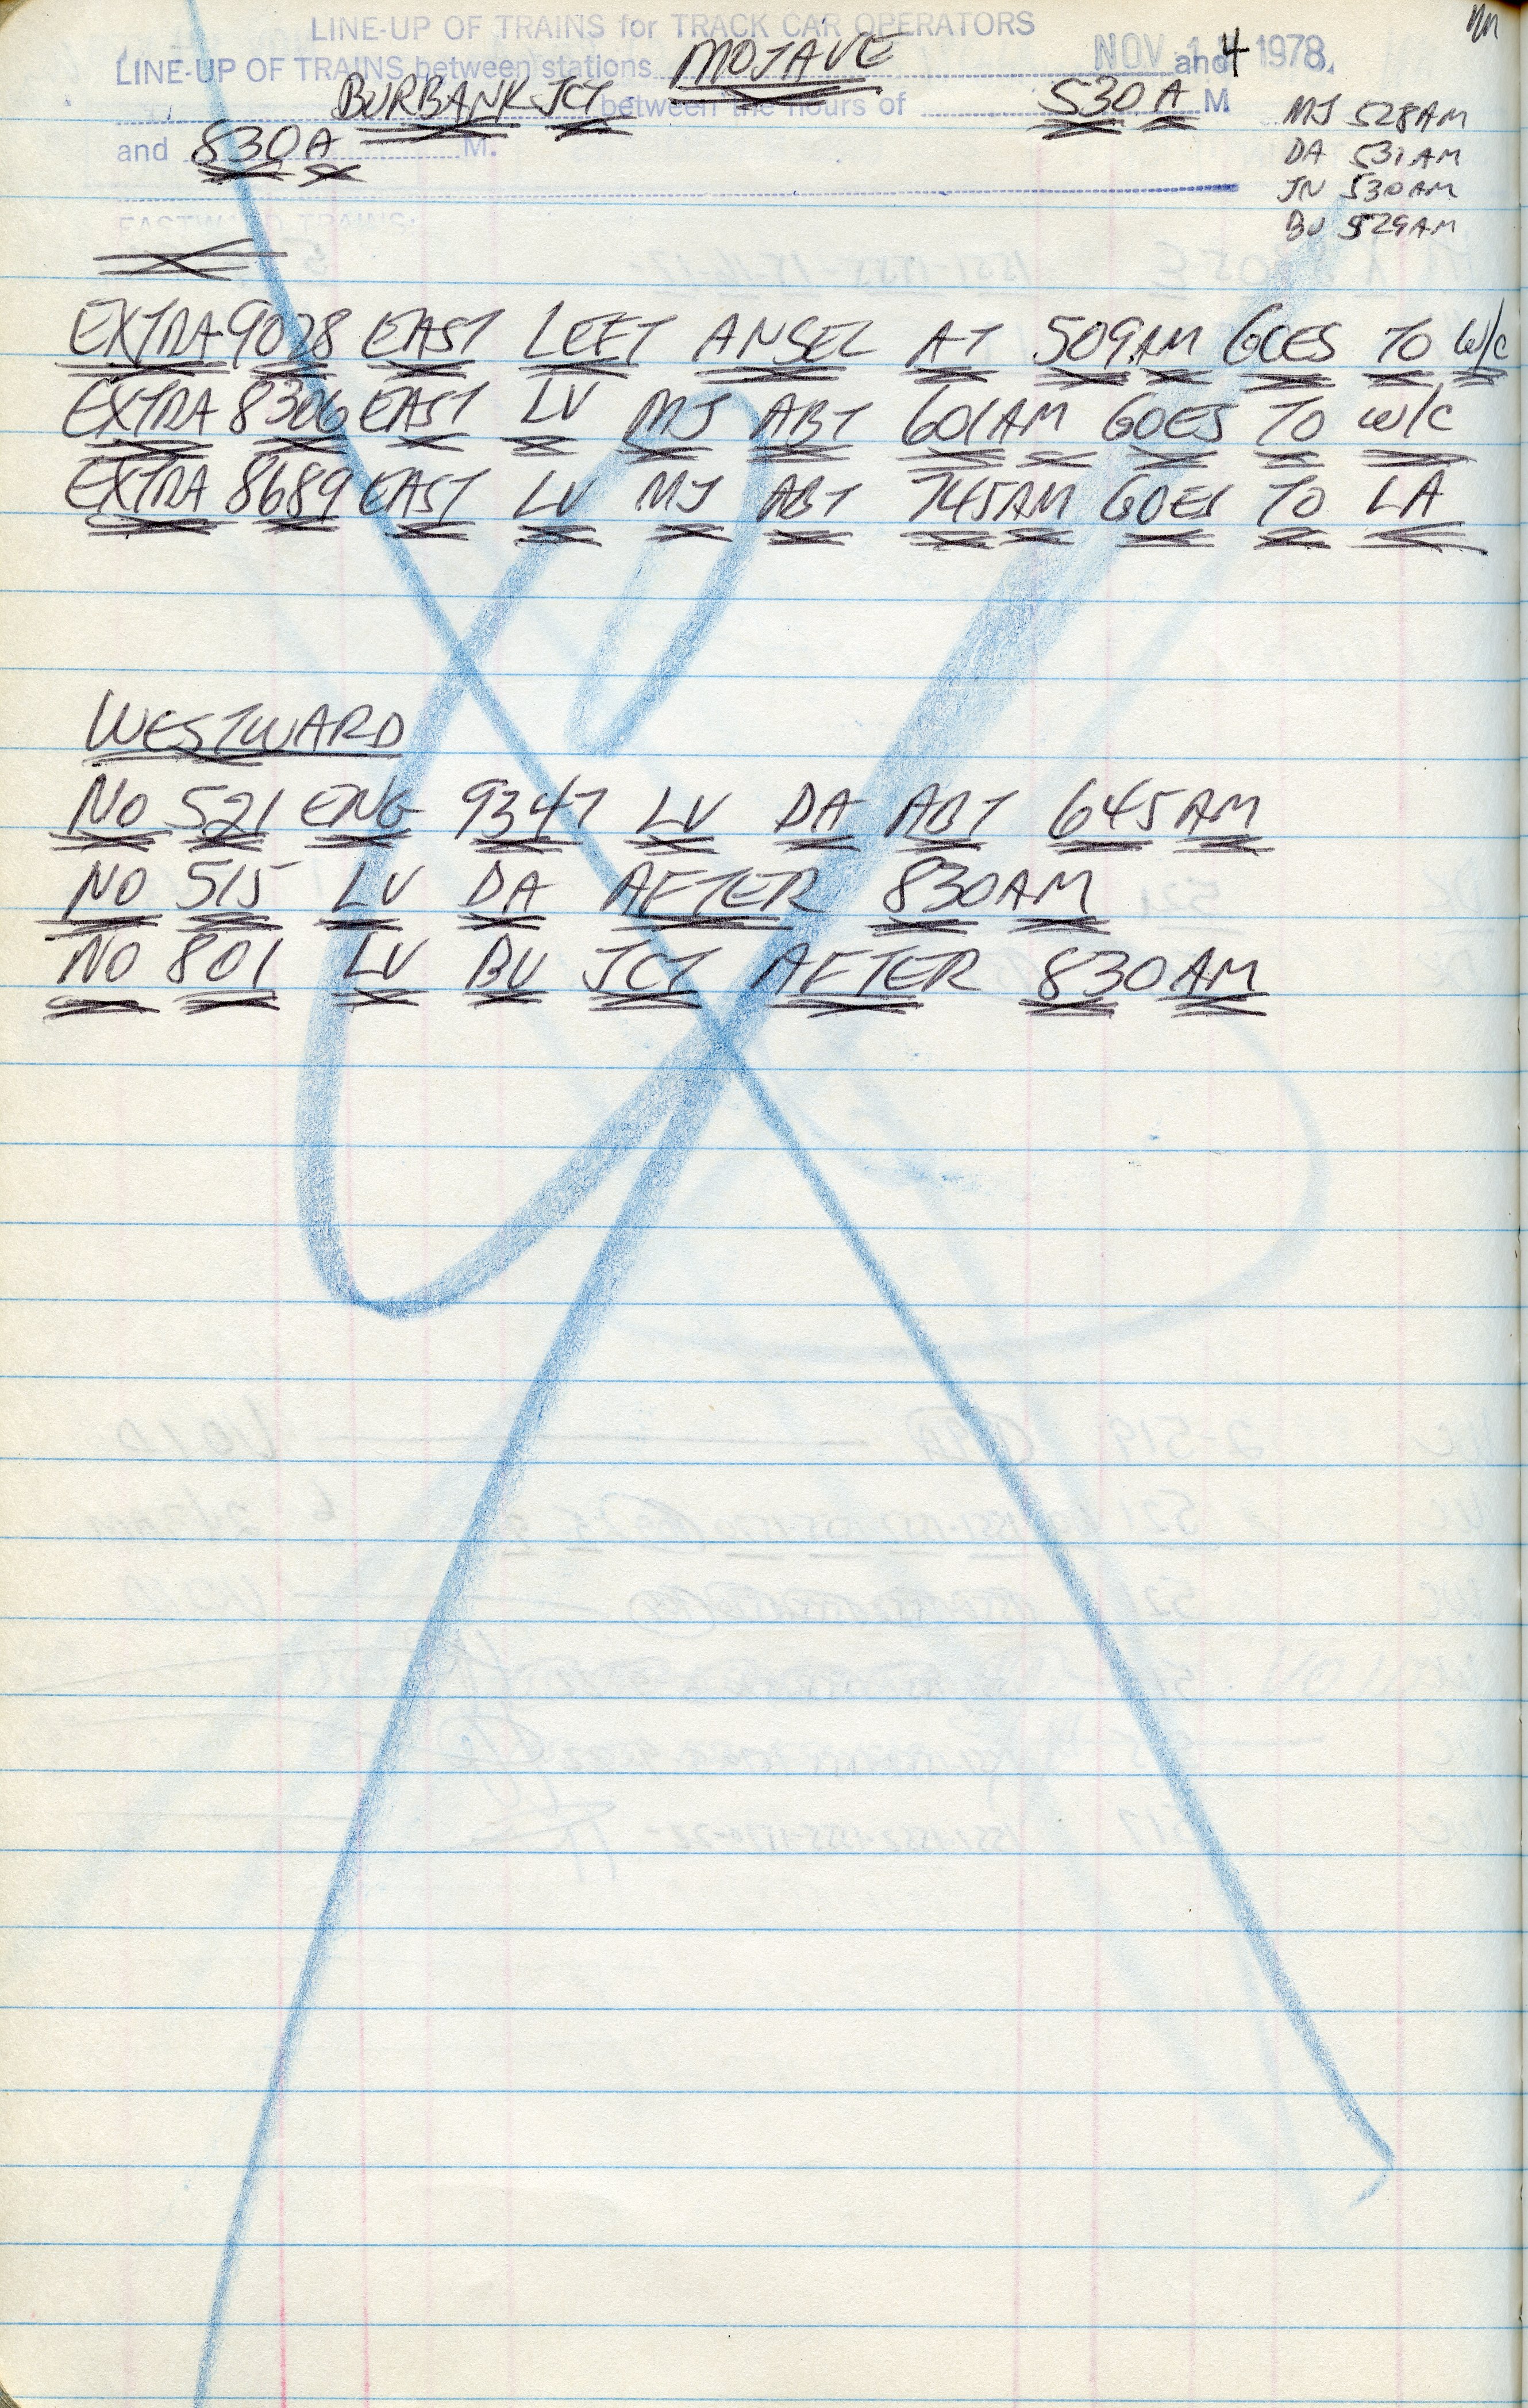 LINE-UP OF TRAINS for TRACK CAR OPERATORS
LINE-UP OF TRAINS between stations MOJAVE and NOV 14 1978
BURBANK JCT between the hours of 530 A M
and 830 A M.
MJ 528AM
DA 531AM
JN 530AM
BU 529AM
EASTWARD TRAINS:
EXTRA 9028 EAST LEFT ANSEL AT 509AM GOES TO W/C
EXTRA 8306 EAST LV MJ ABT 601AM GOES TO W/C
EXTRA 8689 EAST LV MJ ABT 745AM GOES TO LA
WESTWARD
NO 521 ENG 9347 LV DA ABT 645AM
NO 515 LV DA AFTER 830AM
NO 801 LV BU JCT AFTER 830AM